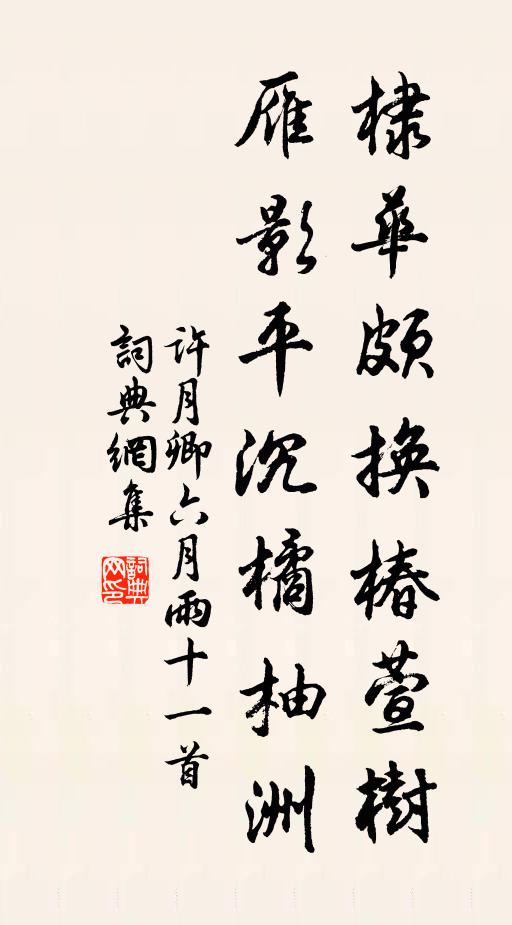 棣華頗換椿萱樹
雁影平沉橘柚洲
許月卿六月雨十一首
詞典網集
詞典網印